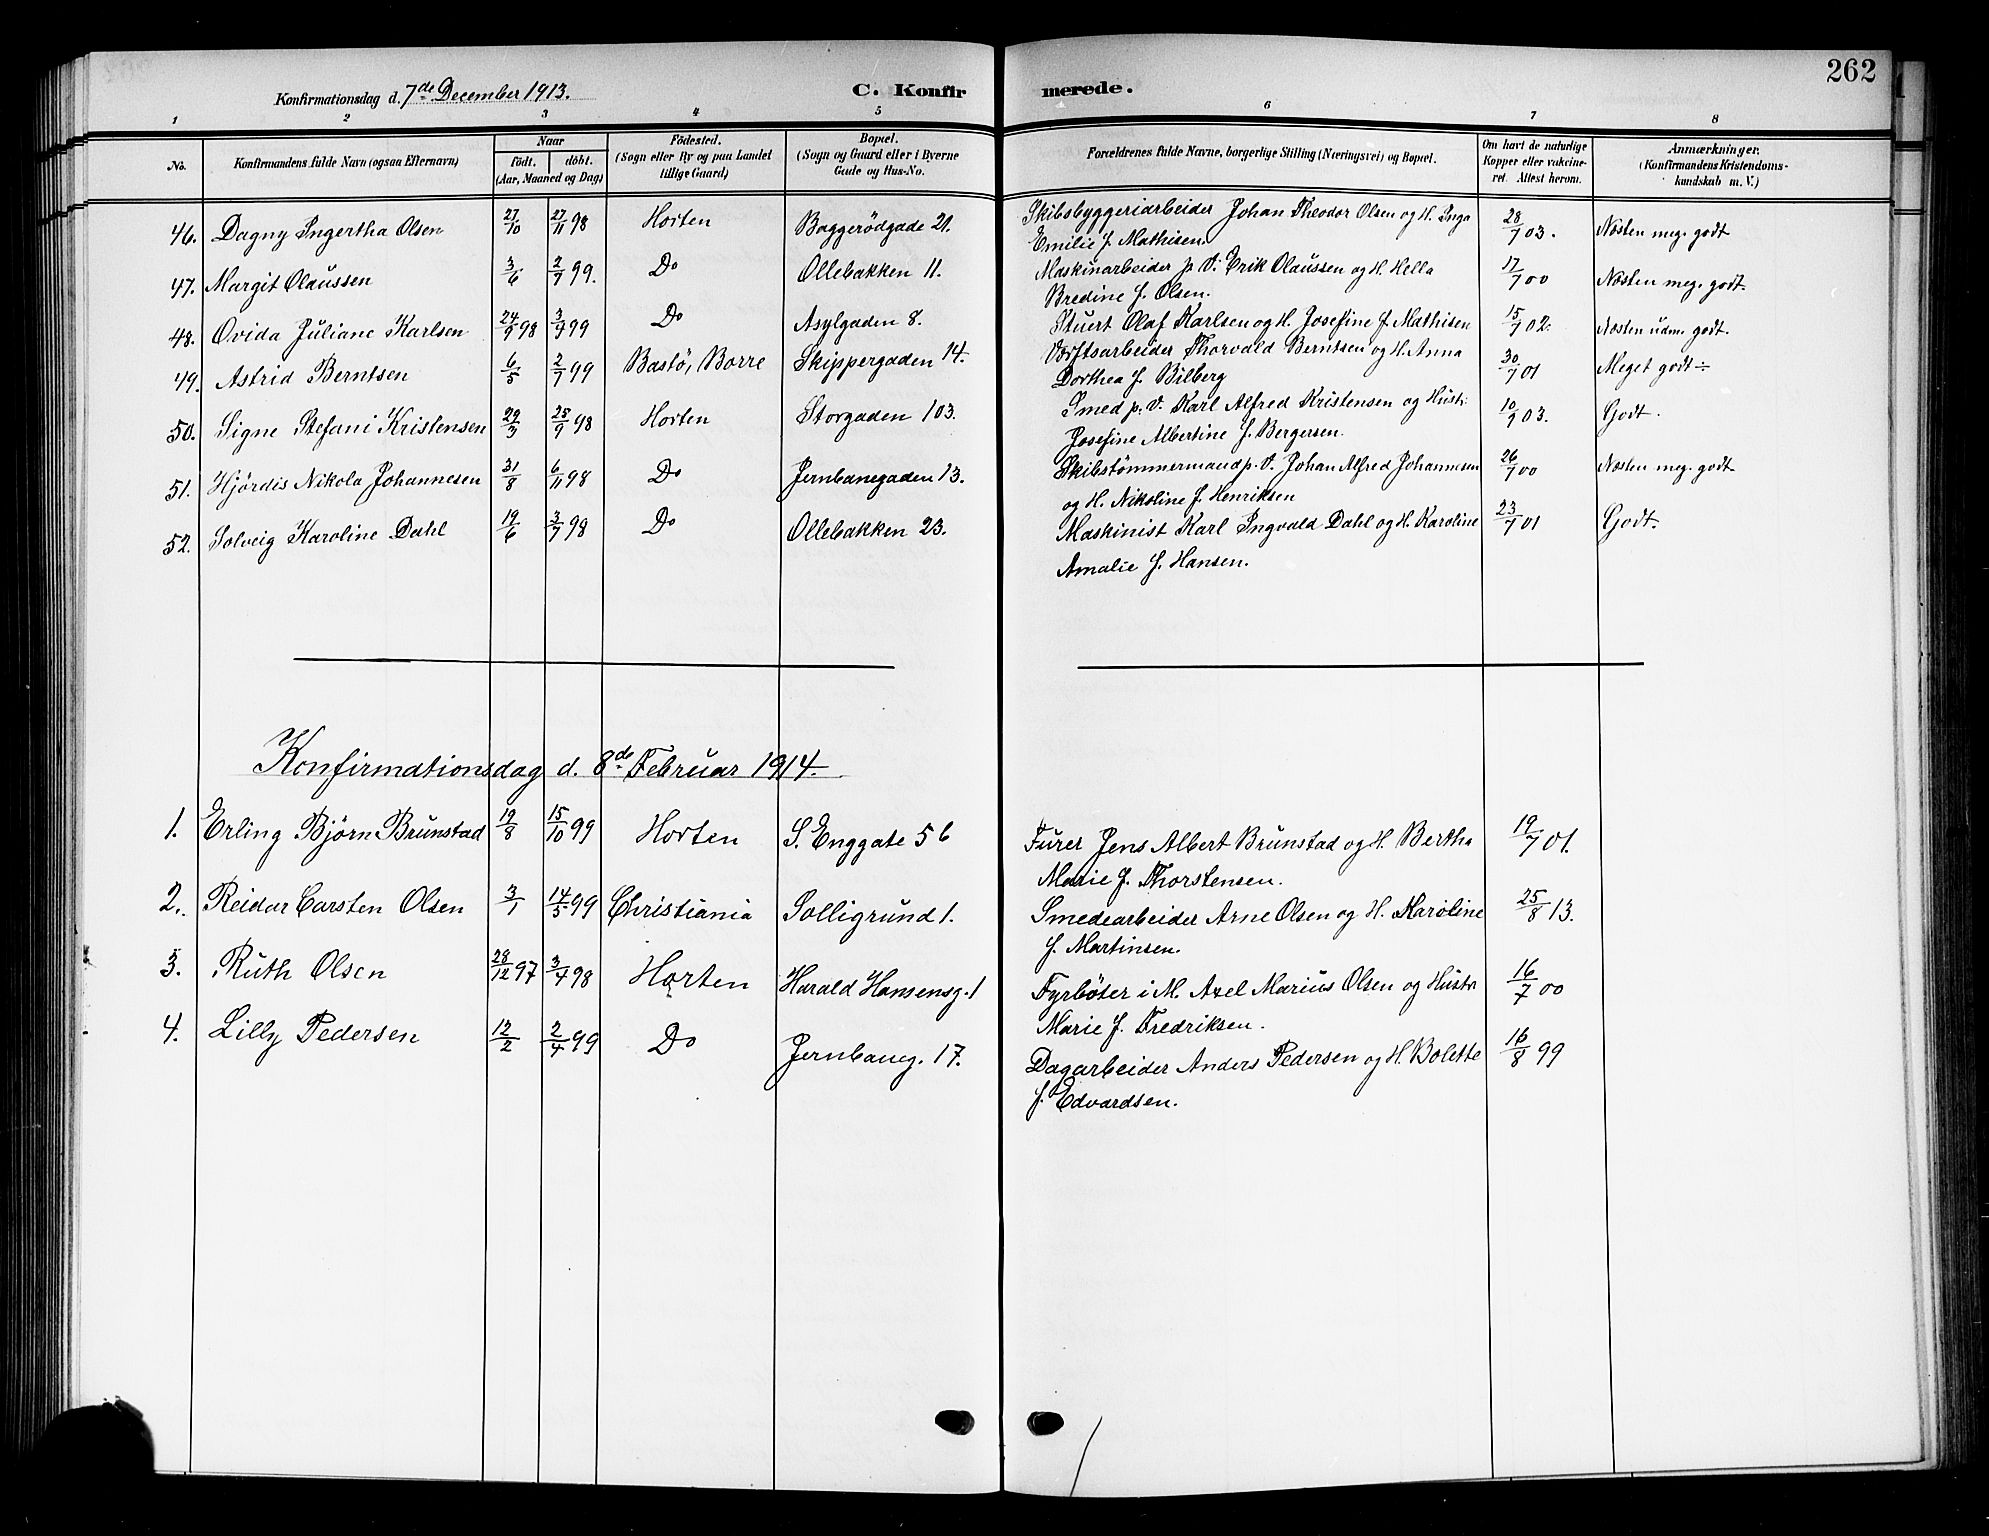 262
Konfirmationsdag d. 7de December 1913.
C. Konfirmerede.
1 2 3 4 5 6 7 8
No.
Konfirmandens fulde Navn (ogsaa Efternavn)
Naar
födt. döbt.
(Aar, Maaned og Dag)
Födested.
(Sogn eller By og paa Landet
tillige Gaard)
Bopæl.
(Sogn og Gaard eller i Byerne
Gade og Hus-No.
Forældrenes fulde Navne, borgerlige Stilling (Næringsvei) og Bopæl.
Om havt de naturlige
Kopper eller vakcine-
ret. Attest herom.
Anmærkninger.
(Konfirmandens Kristendoms-
kundskab m. V.)
46. Dagny Ingertha Olsen 27/10 27/11 98 Horten Baggerödgade 21. Skibsbyggeriarbeider Johan Theodor Olsen og H. Inga 28/7 03. Næsten meg. godt
Emilie f. Mathisen.
47. Margit Olaussen 3/6 2/7 99. Do Ollebakken 11. Maskinarbeider p. V. Erik Olaussen og H. Hella 17/7 00 Næsten meg. godt.
Bredine f. Olsen.
48. Ovida Juliane Karlsen 24/9 98 3/9 99 Do Asylgaden 8. Stuert Olaf Karlsen og H. Josefine f. Mathisen 15/7 02. Næsten udm. godt.
49. Astrid Berntsen 6/5 2/7 99 Bastö, Borre Skippergaden 14. Værftsarbeider Thorvald Berntsen og H. Anna 30/7 01 Meget godt ÷
Dorthea f. Bilberg
50. Signe Stefani Kristensen 29/3 25/9 98 Horten Storgaden 103. Smed p. V. Karl Alfred Kristensen og Hustr. 10/9 03. Godt.
Josefine Albertine f. Bergersen.
51. Hjördis Nikola Johannesen 31/8 6/11 98 Do Jernbanegaden 13. Skibstömmermand p. V. Johan Alfred Johannesen 26/7 00 Næsten meg. godt
og H. Nikoline f. Henriksen
52. Solveig Karoline Dahl 19/6 3/7 98 Do Ollebakken 23. Maskinist Karl Ingvald Dahl og H. Karoline 23/7 01 Godt.
Amalie f. Hansen.
Konfirmationsdag d. 8de Februar 1914.
1. Erling Bjørn Brunstad 19/8 15/10 99 Horten S. Enggate 56 Furer Jens Albert Brunstad og H. Bertha 19/7 01.
Marie f. Thorstensen.
2. Reidar Carsten Olsen 3/1 14/5 99 Christiania Solligrund 1. Smedearbeider Arne Olsen og H. Karoline 25/8 13.
f. Martinsen.
3. Ruth Olsen 28/12 97 3/4 98 Horten Harald Hansensg. 1 Fyrböter i M. Axel Marius Olsen og Hustr 16/7 00
Marie f. Fredriksen.
4. Lilly Pedersen 12/2 2/4 99 Do Jernbaneg. 17. Dagarbeider Anders Pedersen og H. Bolette 16/8 99
f. Edvardsen.